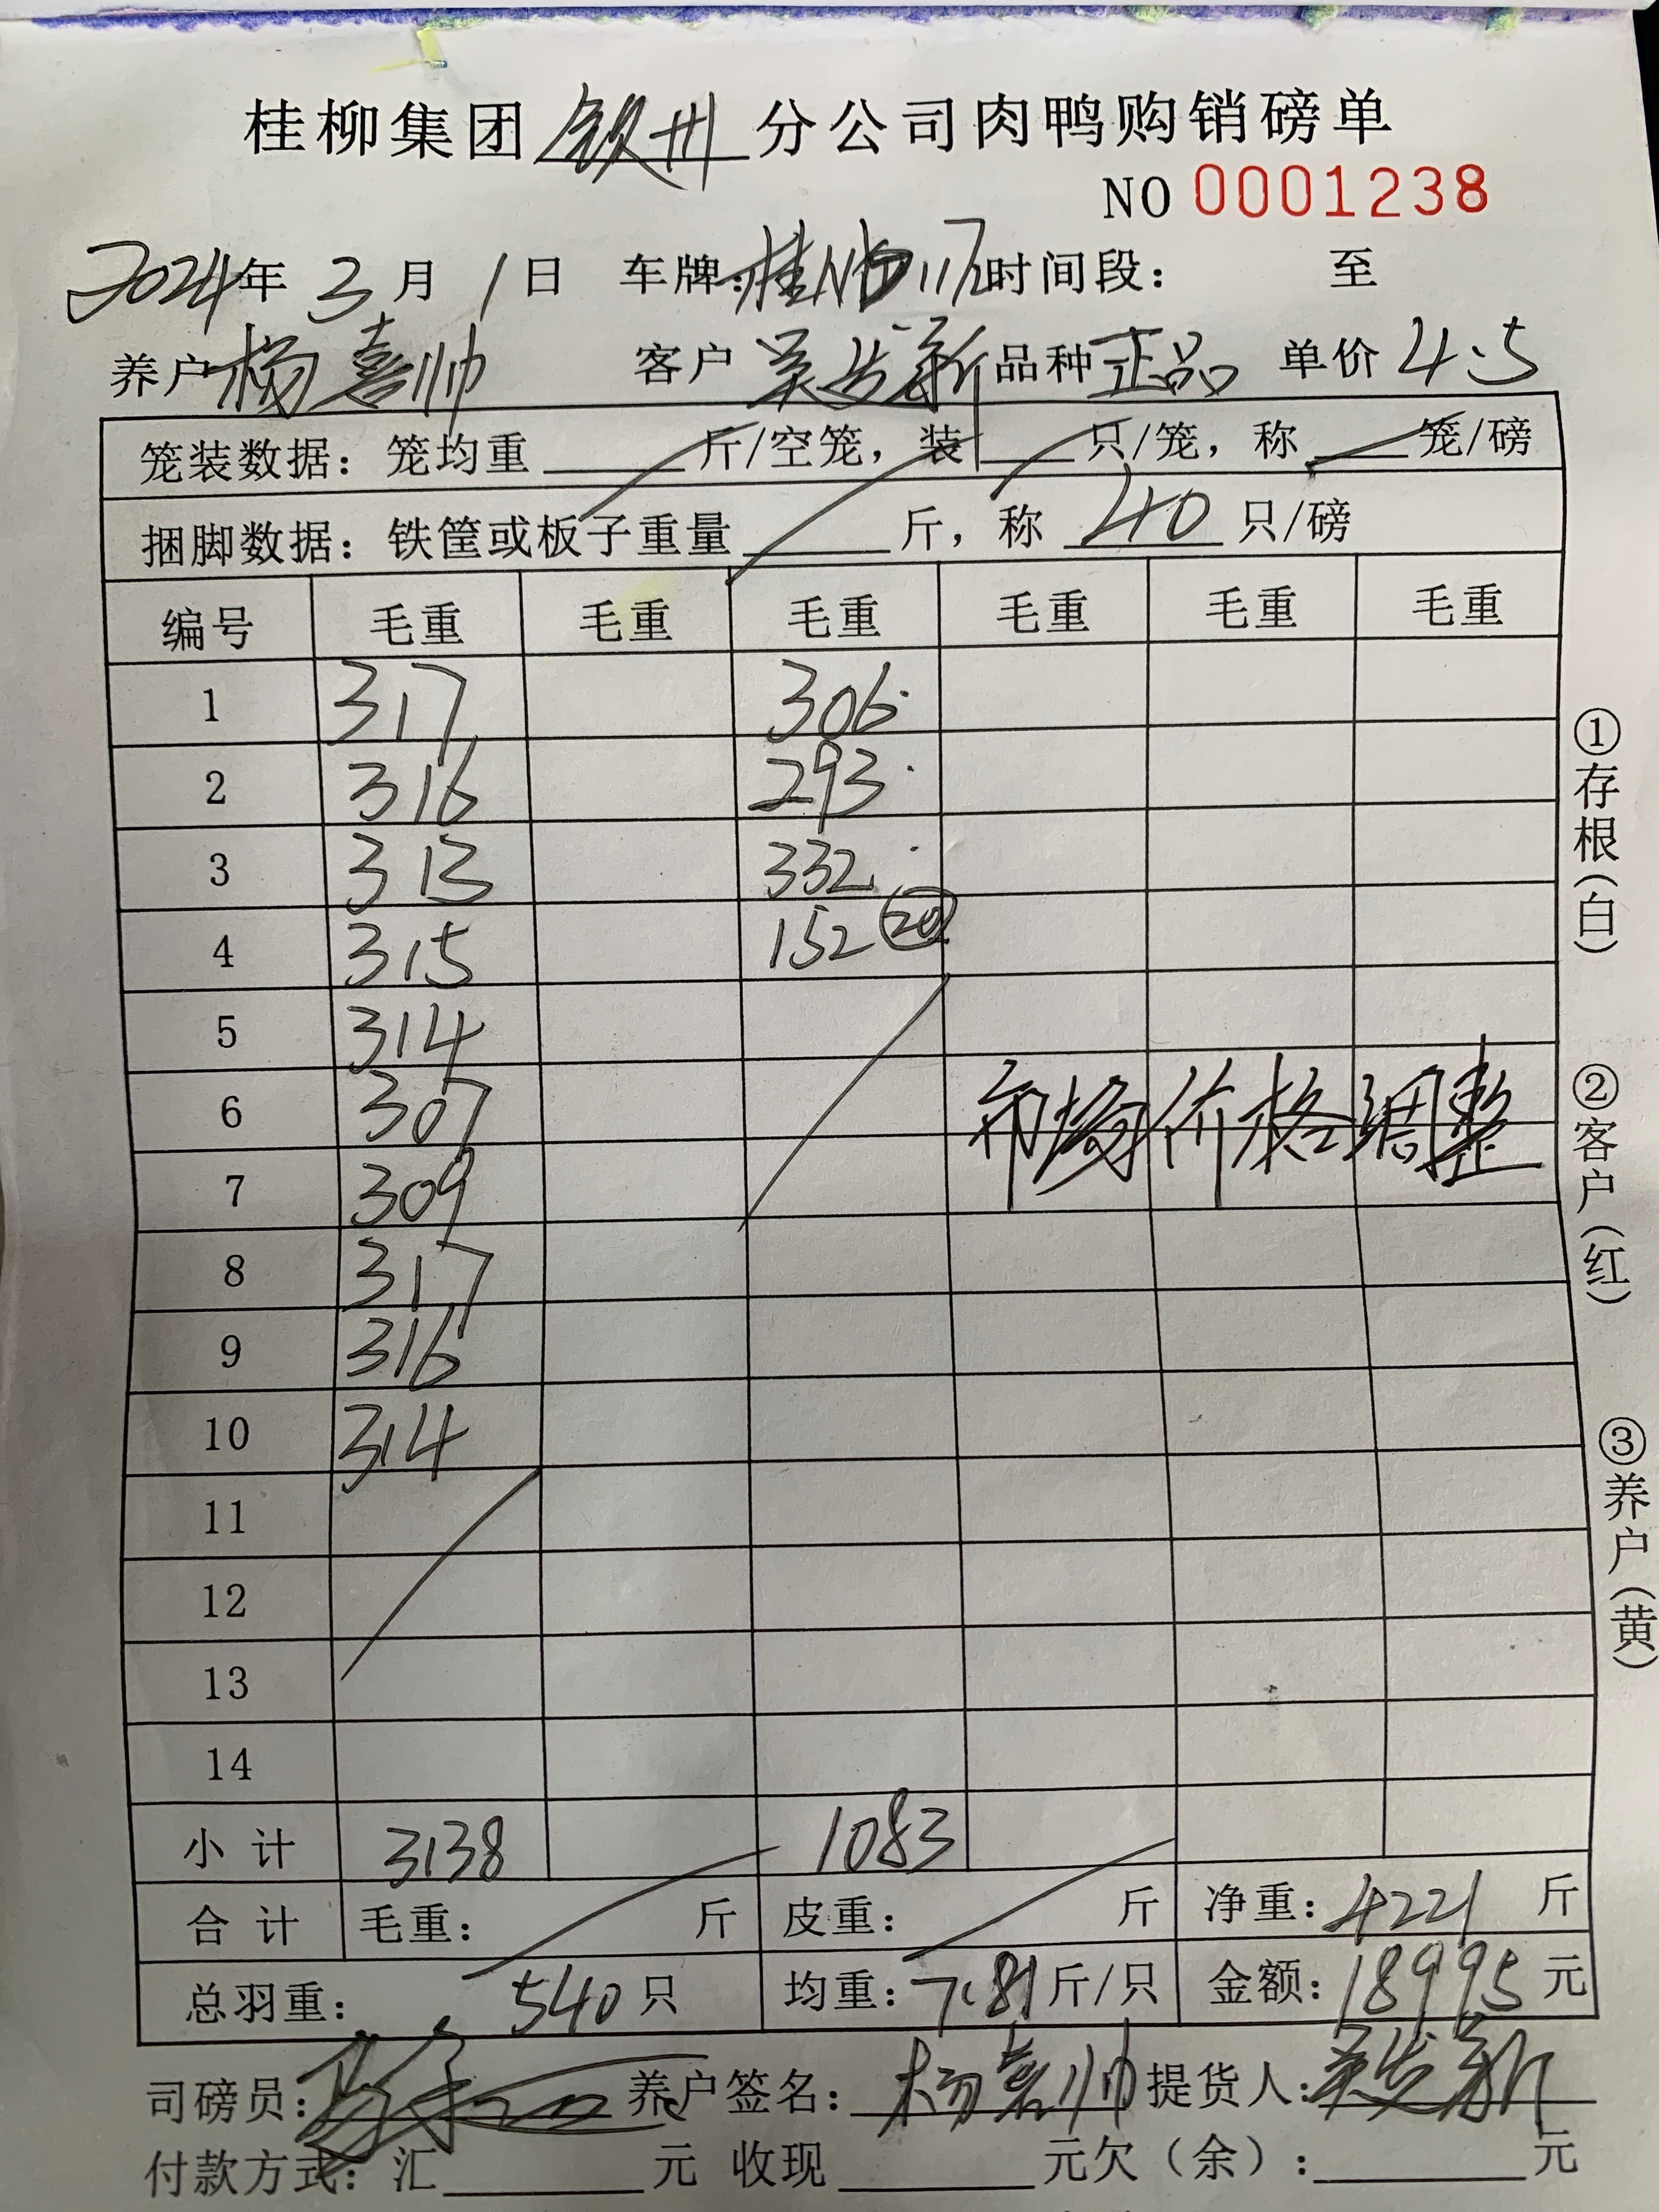 桂柳集团 钦州 分公司肉鸭购销磅单
NO 0001238
2024年 3 月 1 日 车牌: 时间段: 至
养户 杨喜帅 客户 吴发新 品种 正品 单价 4.5
笼装数据: 笼均重 斤/空笼, 装 只/笼, 称 笼/磅
捆脚数据: 铁筐或板子重量 斤, 称 40 只/磅
编号 毛重 毛重 毛重 毛重 毛重 毛重
1 317 306
2 316 293
3 313 332
4 315 152 20
5 314
6 307 市场价格调整
7 309
8 317
9 316
10 314
11
12
13
14
小计 3138 1083
合计 毛重: 斤 皮重: 斤 净重: 4221 斤
总羽重: 540 只 均重: 7.81 斤/只 金额: 18995 元
司磅员: 养户签名: 杨喜帅 提货人: 吴发新
付款方式: 汇 元 收现 元欠(余): 元
①存根(白)
②客户(红)
③养户(黄)